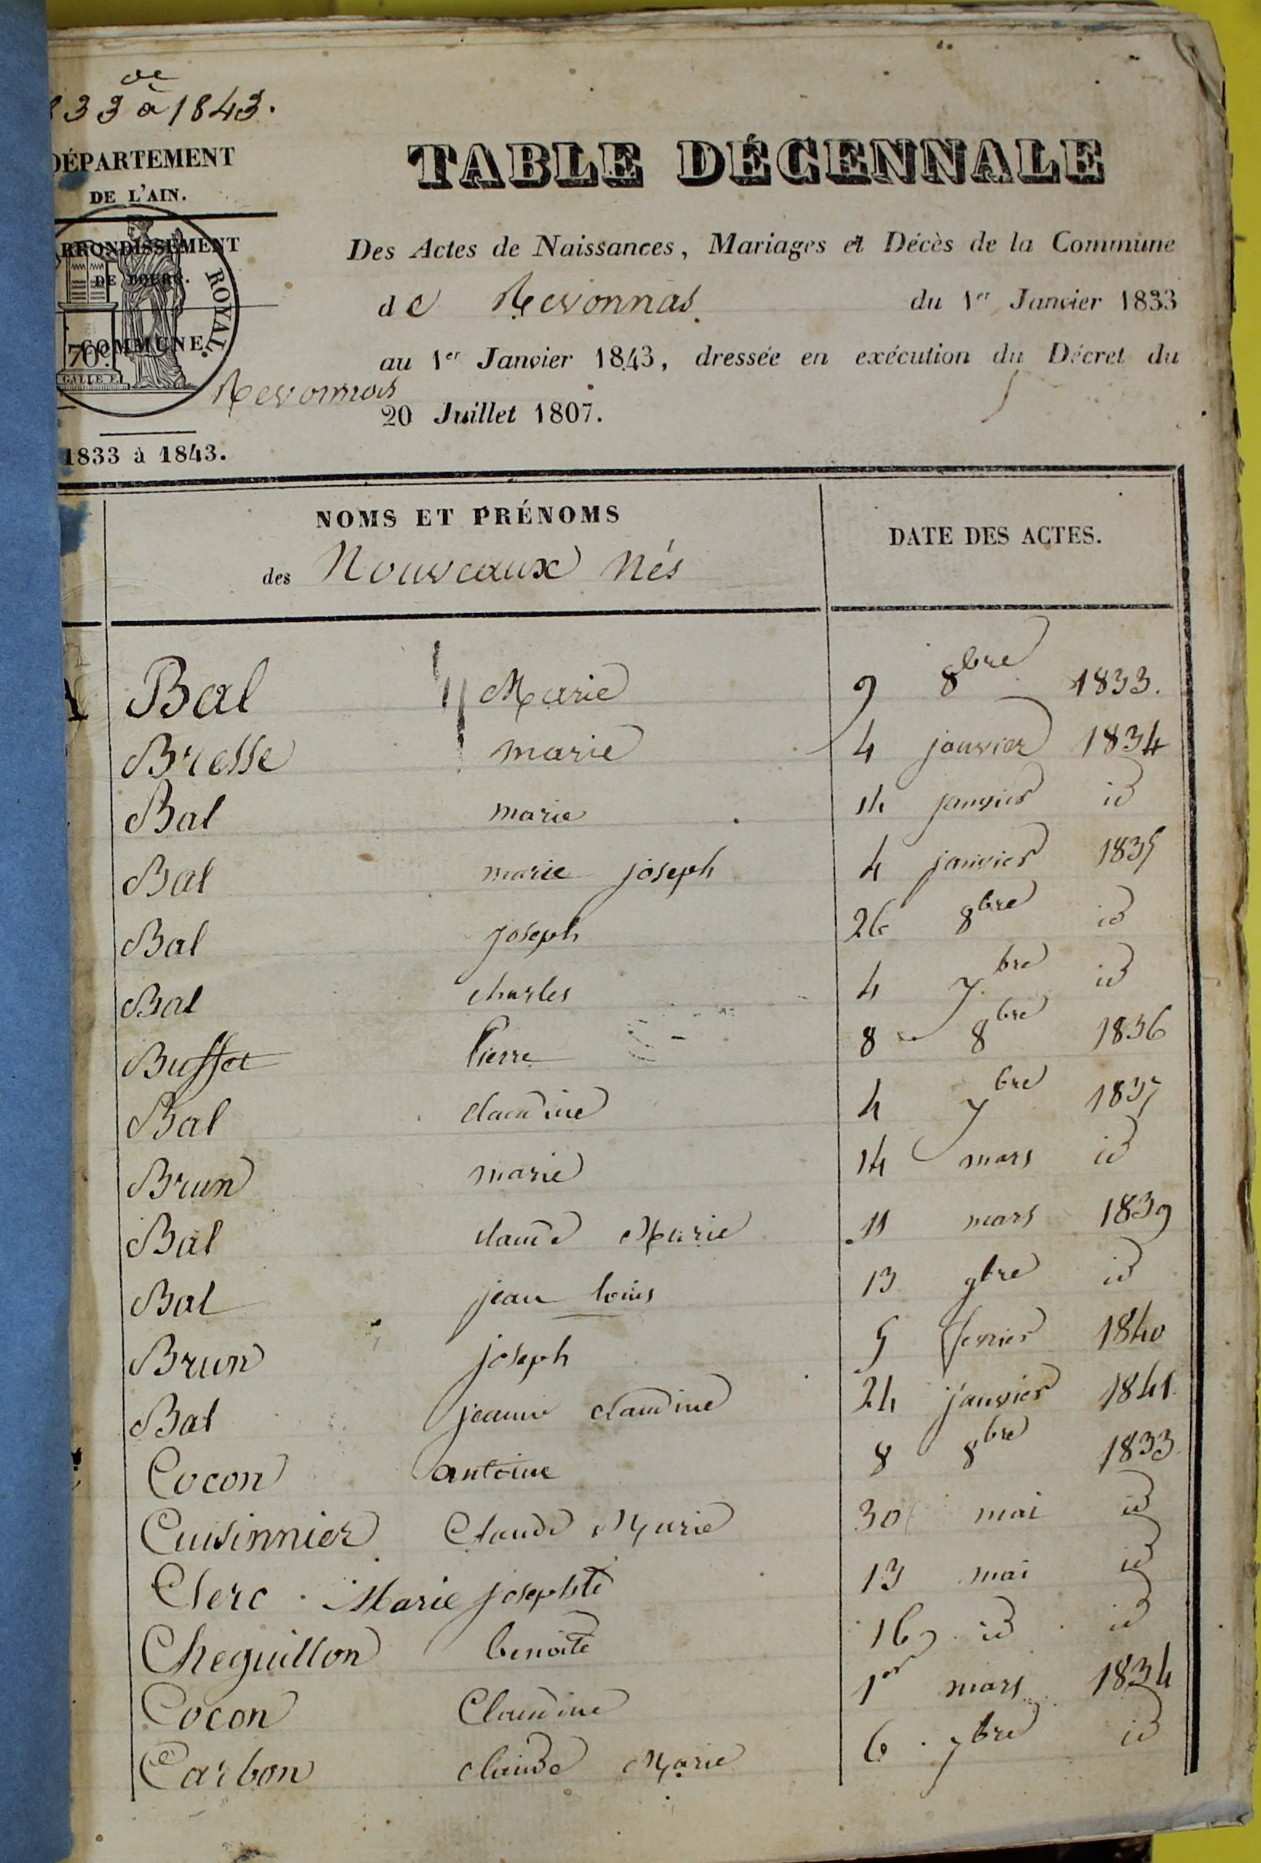 de
33 à 1843.
DÉPARTEMENT
DE L'AIN.
ARRONDISSEMENT
DE BOURG.
ROYAL.
70c.
COMMUNE
Revonnas
1833 à 1843.
TABLE DÉCENNALE
Des Actes de Naissances, Mariages et Décès de la Commune
de Revonnas du 1er Janvier 1833
au 1er Janvier 1843, dressée en exécution du Décret du
20 Juillet 1807.
NOMS ET PRÉNOMS DATE DES ACTES.
des Nouveaux Nés
Bal Marie 9 8bre 1833.
Bresse marie 4 janvier 1834
Bal marie 14 janvier id
Bal marie joseph 4 janvier 1835
Bal joseph 26 8bre id
Bal charles 4 7bre id
Buffet Pierre 8 8bre 1836
Bal claudine 4 7bre 1837
Brun marie 14 mars id
Bal claude Marie 11 mars 1839
Bal jean louis 13 9bre id
Brun joseph 5 fevrier 1840
Bal jeanne claudine 24 janvier 1841
Cocon antoine 8 8bre 1833
Cuisinnier Claude Marie 30 mai id
Clerc Marie josephte 13 mai id
Cheguillon benoite 16 id id
Cocon Claudine 1er mars 1834
Carbon claude Marie 6 7bre id